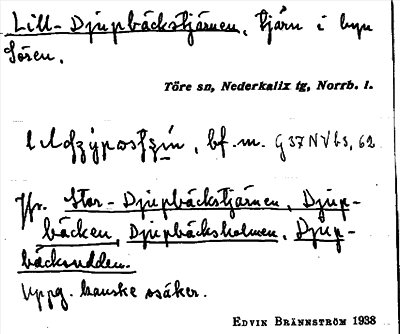 Lill-Djupbäckstjärnen, tjärn i byn
Sören.
Töre sn, Nederkalix tg, Norrb. l.
bf. m. G37NVb3, 62
Jfr. Stor-Djupbäckstjärnen, Djup-
bäcken, Djupbäcksholmen, Djup-
bäcksudden.
Uppg. kanske osäker.
EDVIN BRÄNNSTRÖM 1938